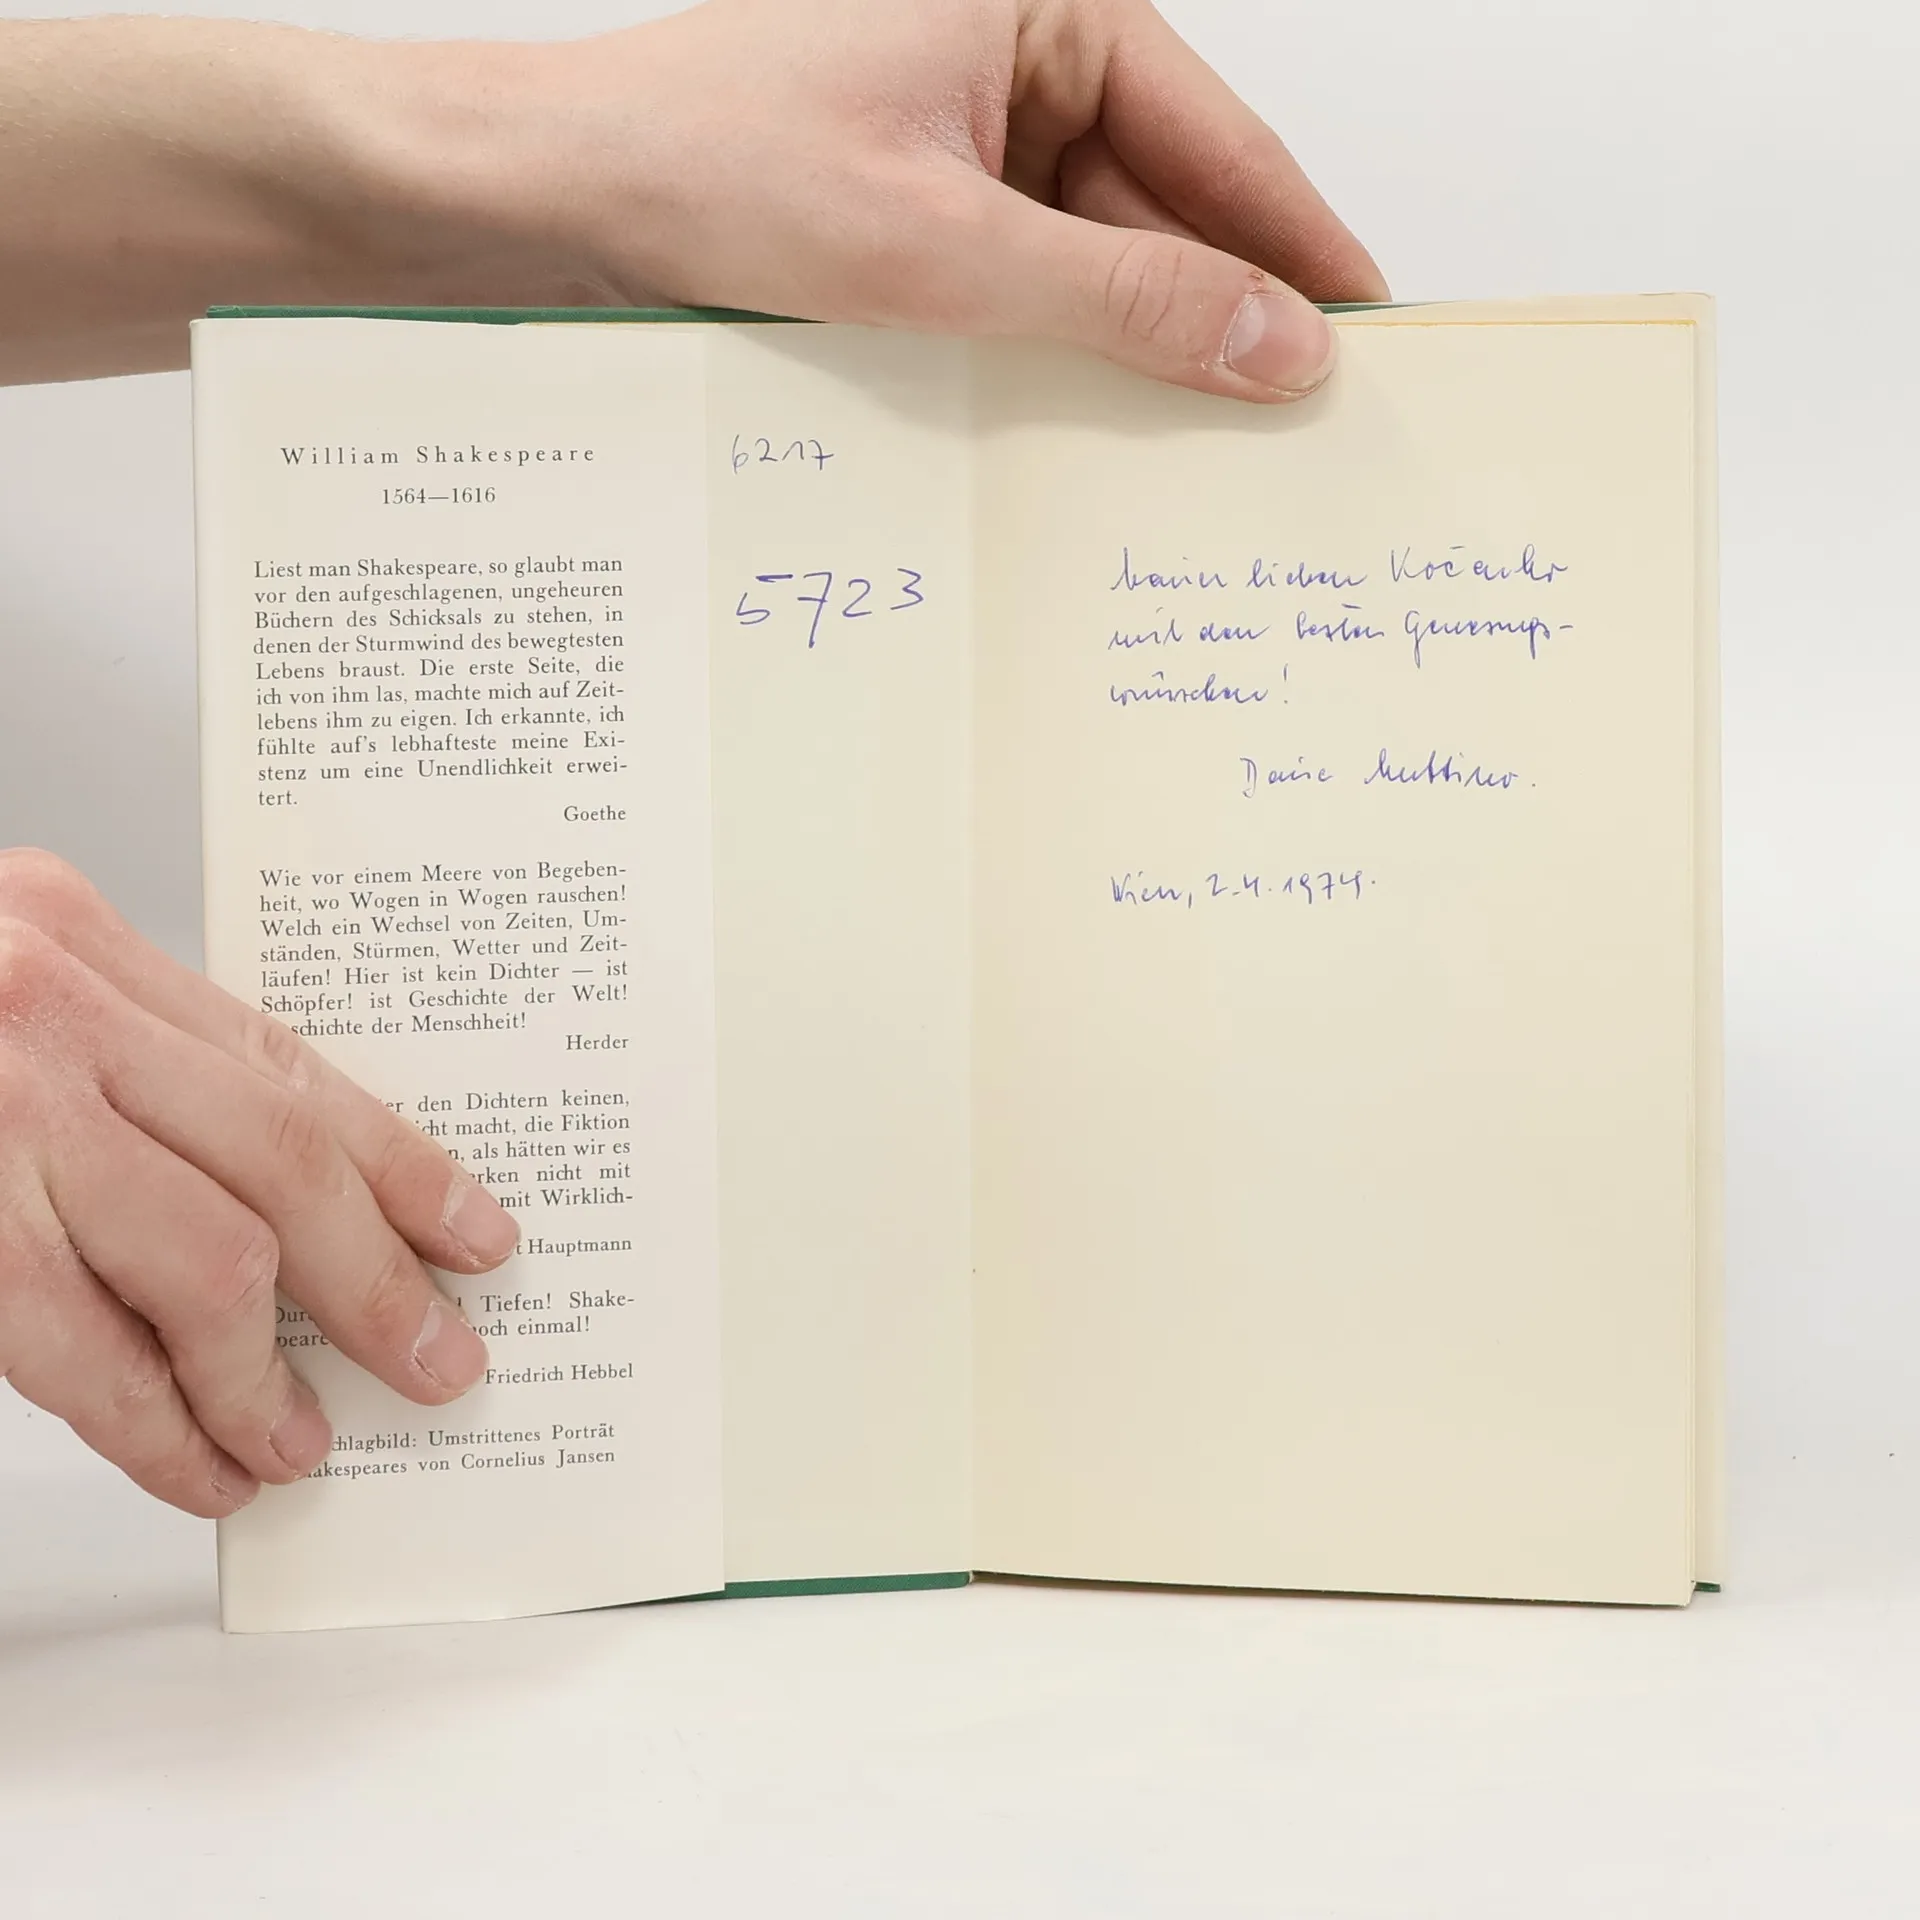 William Shakespeare
1564—1616
Liest man Shakespeare, so glaubt man
vor den aufgeschlagenen, ungeheuren
Büchern des Schicksals zu stehen, in
denen der Sturmwind des bewegtesten
Lebens braust. Die erste Seite, die
ich von ihm las, machte mich auf Zeit-
lebens ihm zu eigen. Ich erkannte, ich
fühlte auf's lebhafteste meine Exi-
stenz um eine Unendlichkeit erwei-
tert.
Goethe
Wie vor einem Meere von Begeben-
heit, wo Wogen in Wogen rauschen!
Welch ein Wechsel von Zeiten, Um-
ständen, Stürmen, Wetter und Zeit-
läufen! Hier ist kein Dichter — ist
Schöpfer! ist Geschichte der Welt!
schichte der Menschheit!
Herder
den Dichtern keinen,
macht, die Fiktion
als hätten wir es
nicht mit
mit Wirklich-
Hauptmann
Tiefen! Shake-
einmal!
Friedrich Hebbel
chlagbild: Umstrittenes Porträt
akespeares von Cornelius Jansen
6217
5723
lieben
mit den besten Genesungs-
wünschen!
Deine
Wien, 2.4.1974.